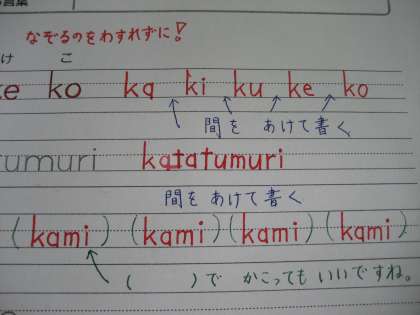 なぞるのをわすれずに!
け こ
ke ko ka ki ku ke ko
間を あけて書く
tumuri katatumuri
間をあけて書く
(kami) (kami) (kami) (kami)
( )で かこっても いいですね。